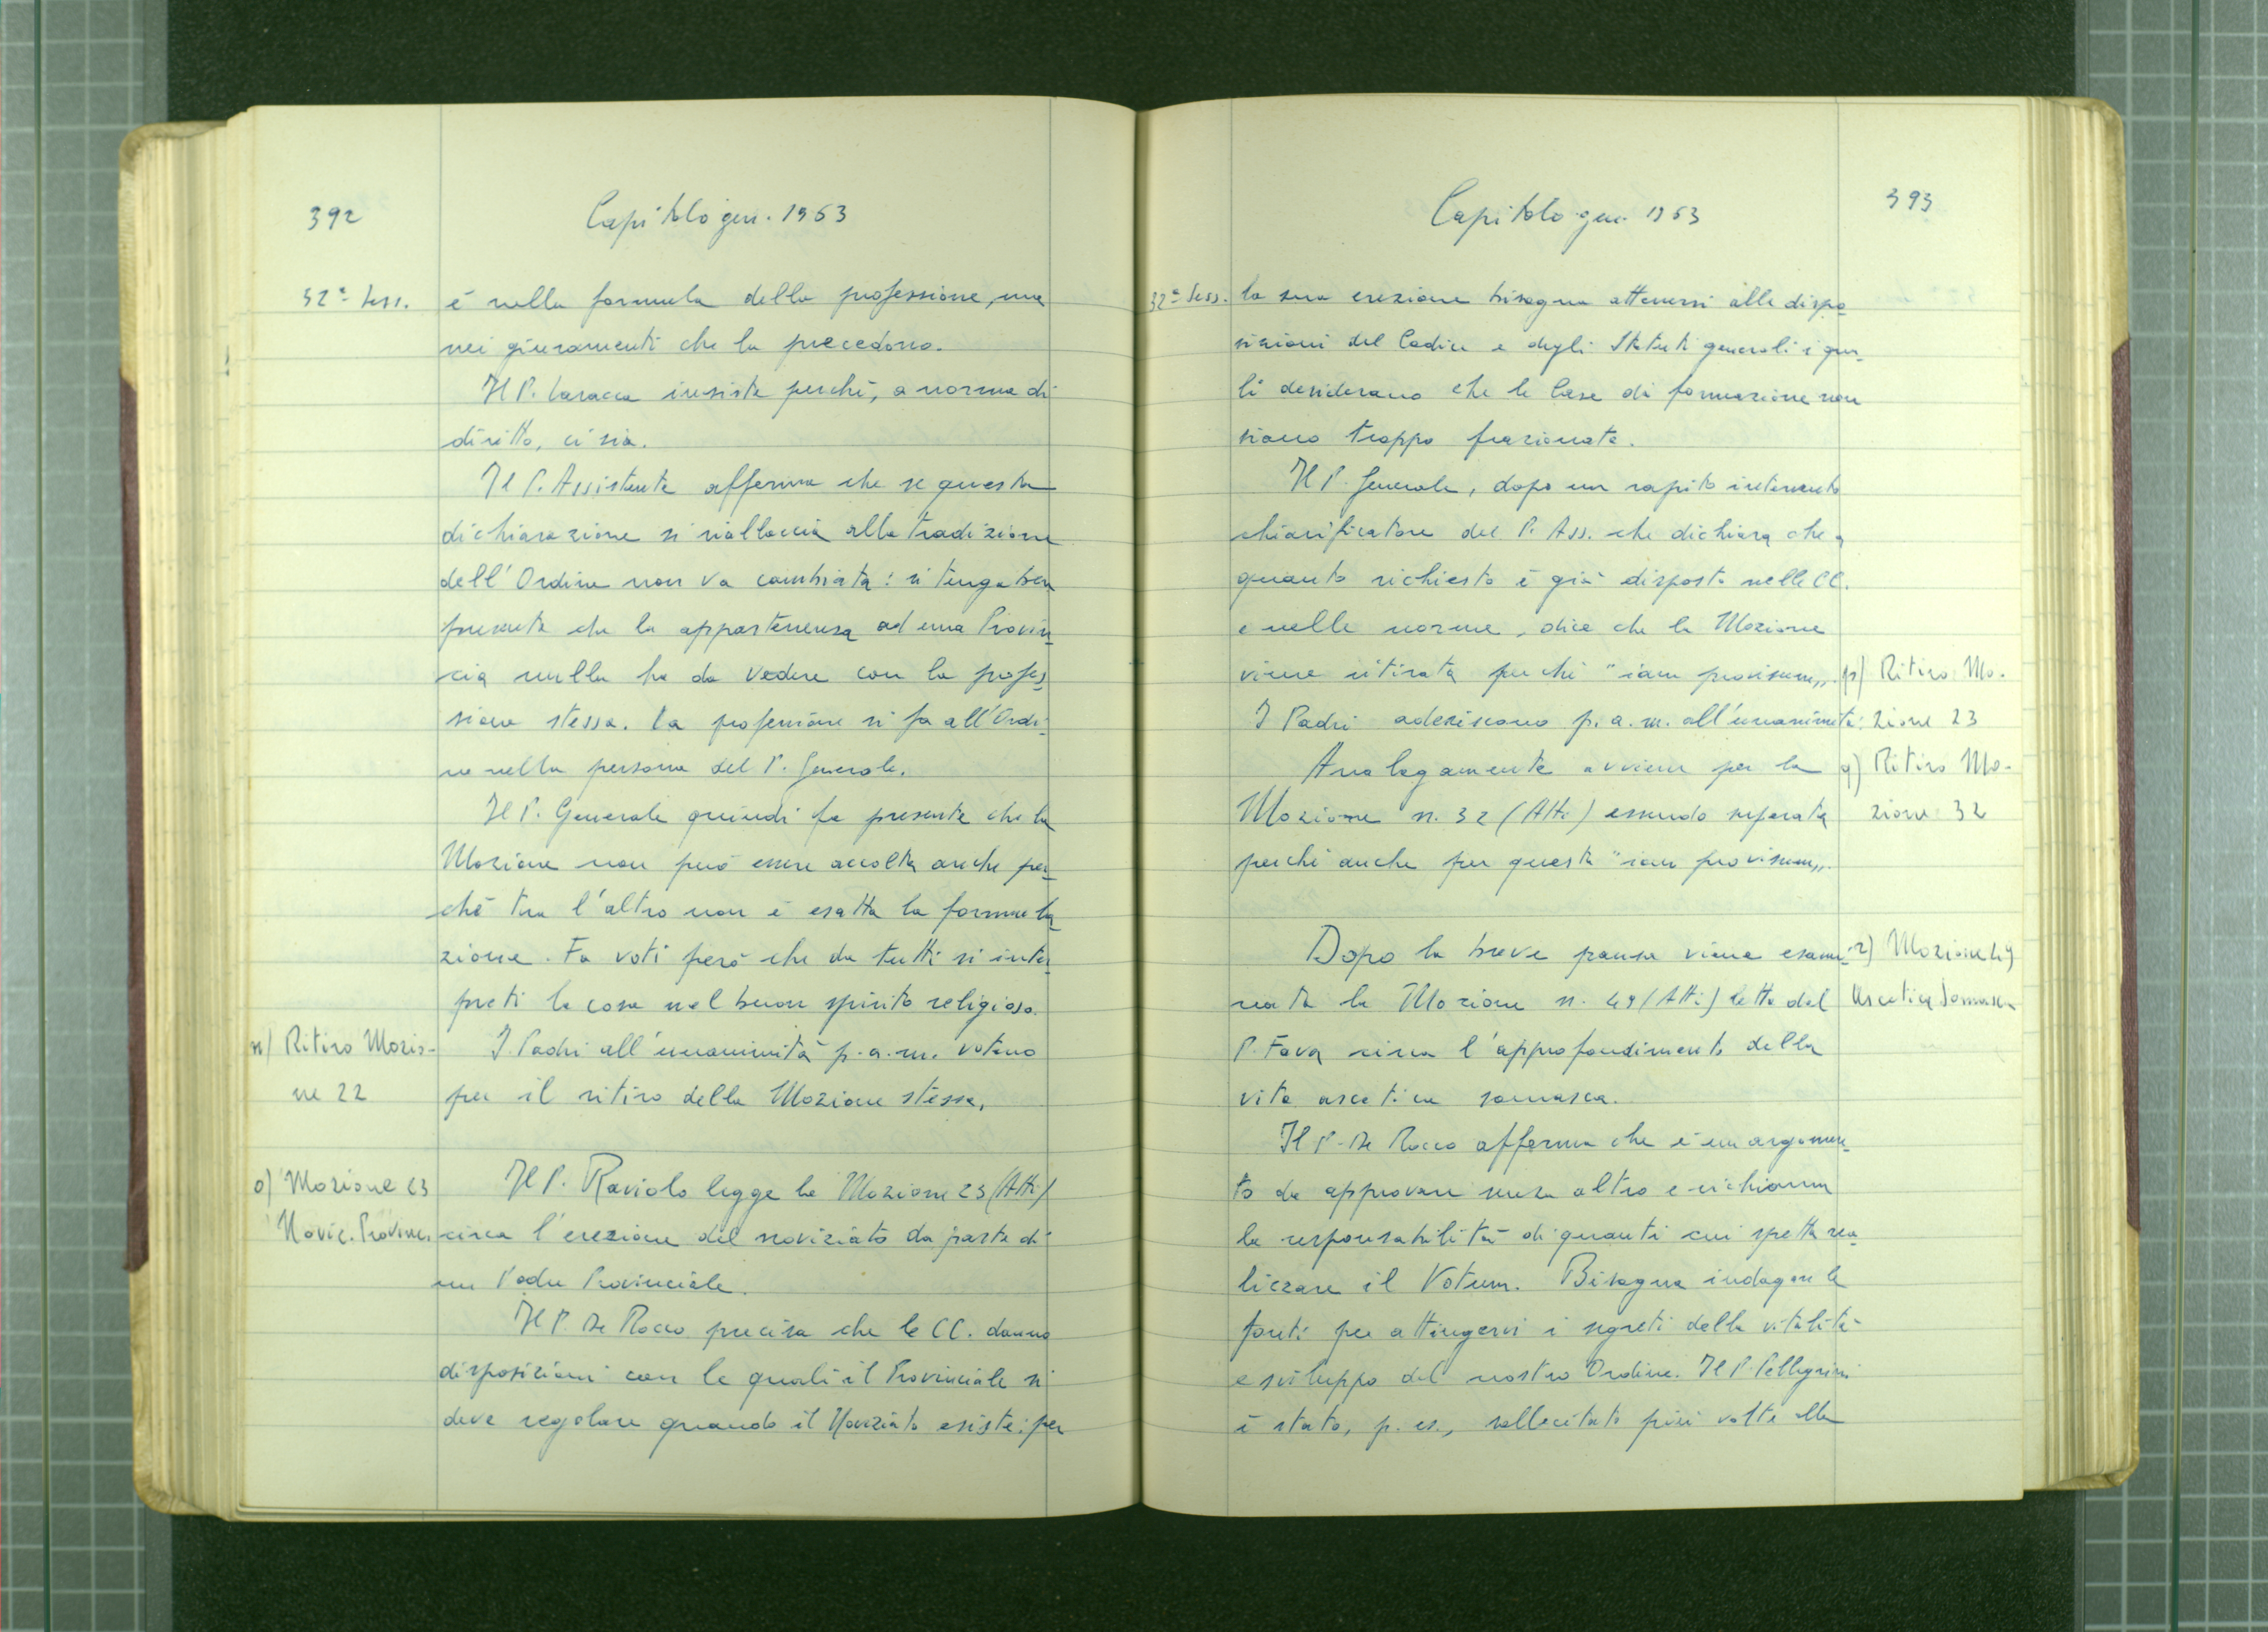 392
Capitolo gen. 1963
32ª Sess.
è nella formula della professione, ma
nei giuramenti che la precedono.
Il P. Laracca insiste perché, a norma di
diritto, ci sia.
Il P. Assistente afferma che se questa
dichiarazione si riallaccia alla tradizione
dell'Ordine non va cambiata: si tenga ben
presente che la appartenenza ad una Provin-
cia nulla ha da vedere con la profes-
sione stessa. La professione si fa all'Ordi-
ne nella persona del P. Generale.
Il P. Generale quindi fa presente che la
Mozione non può essere accolta anche per-
ché tra l'altro non è esatta la formula-
zione. Fa voti però che da tutti si inter-
preti la cosa nel buon spirito religioso.
n) Ritiro Mozio-
ne 22
I Padri all'unanimità p.a.m. votano
per il ritiro della Mozione stessa.
o) Mozione 23
Novic. Provinc.
Il P. Raviolo legge la Mozione 23 (Atti)
circa l'erezione del noviziato da parte di
un Padre Provinciale.
Il P. De Rocco precisa che le CC. danno
disposizioni con le quali il Provinciale si
deve regolare quando il Noviziato esiste: per
393
Capitolo gen. 1963
32ª Sess.
la sua erezione bisogna attenersi alle dispo-
sizioni del Codice e degli Statuti generali i qua-
li desiderano che le Case di formazione non
siano troppo frazionate.
Il P. Generale, dopo un rapido intervento
chiarificatore del P. Ass. che dichiara che
quanto richiesto è già disposto nelle CC.
e nelle norme, dice che la Mozione
viene ritirata perché "iam provisum".
I Padri aderiscono p.a.m. all'unanimità.
p) Ritiro Mo-
zione 23
Analogamente avviene per la
Mozione n. 32 (Atti) essendo superata
perché anche per questa "iam provisum".
q) Ritiro Mo-
zione 32
Dopo la breve pausa viene esami-
nata la Mozione n. 49 (Atti) letta dal
P. Fava circa l'approfondimento della
vita ascetica somasca.
r) Mozione 49
Ascetica Somasca
Il P. De Rocco afferma che è un argomen-
to da approvare senza altro e richiama
la responsabilità di quanti cui spetta rea-
lizzare il Votum. Bisogna indagare le
fonti per attingervi i segreti della vitalità
e sviluppo del nostro Ordine. Il P. Pellegrini
è stato, p. es., sollecitato più volte alla